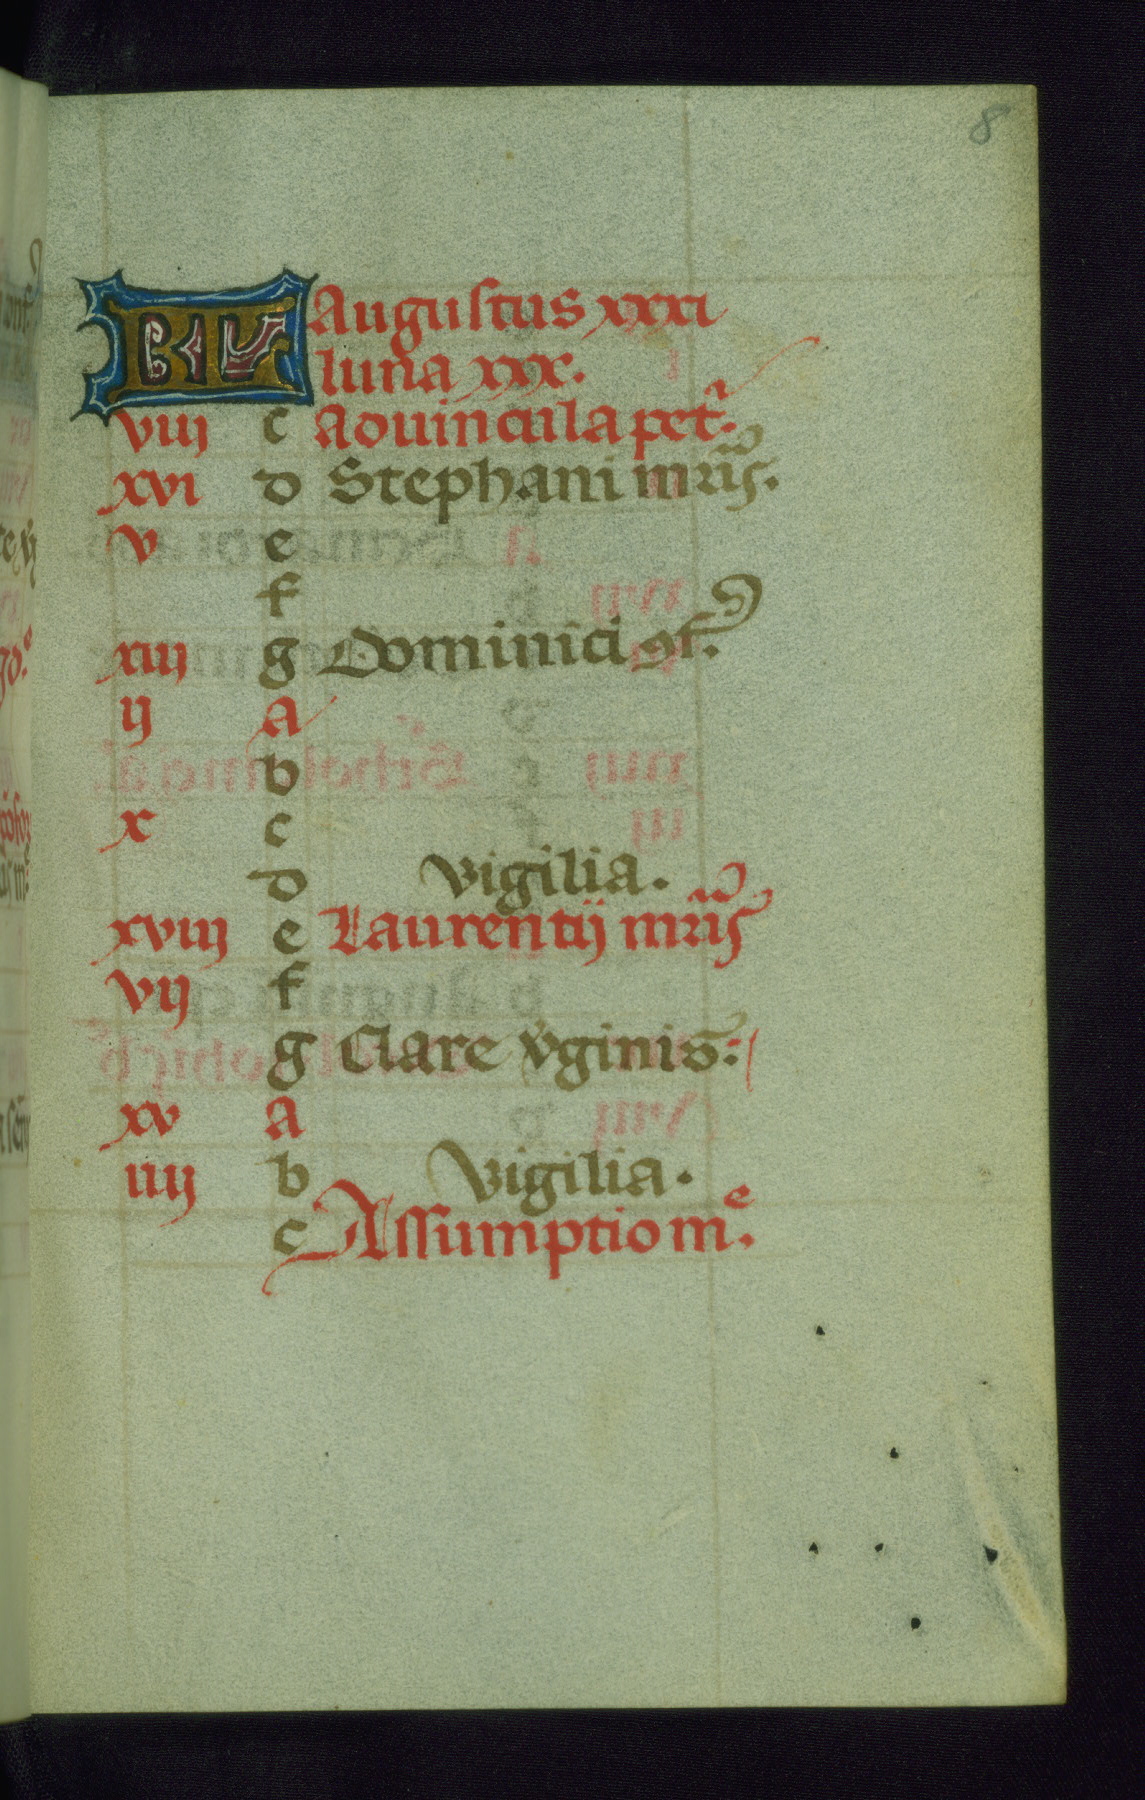 8
KL Augustus xxxi
luna xxx.
viij c Aduincula petr.
xvi d Stephani mris.
v e
f
xiij g Dominici 9f.
ij A
b
x c
d vigilia.
xviij e Laurentij mris
vij f
g Clare v̾ginis.
xv A
iiij b Vigilia.
c Assumptio me.